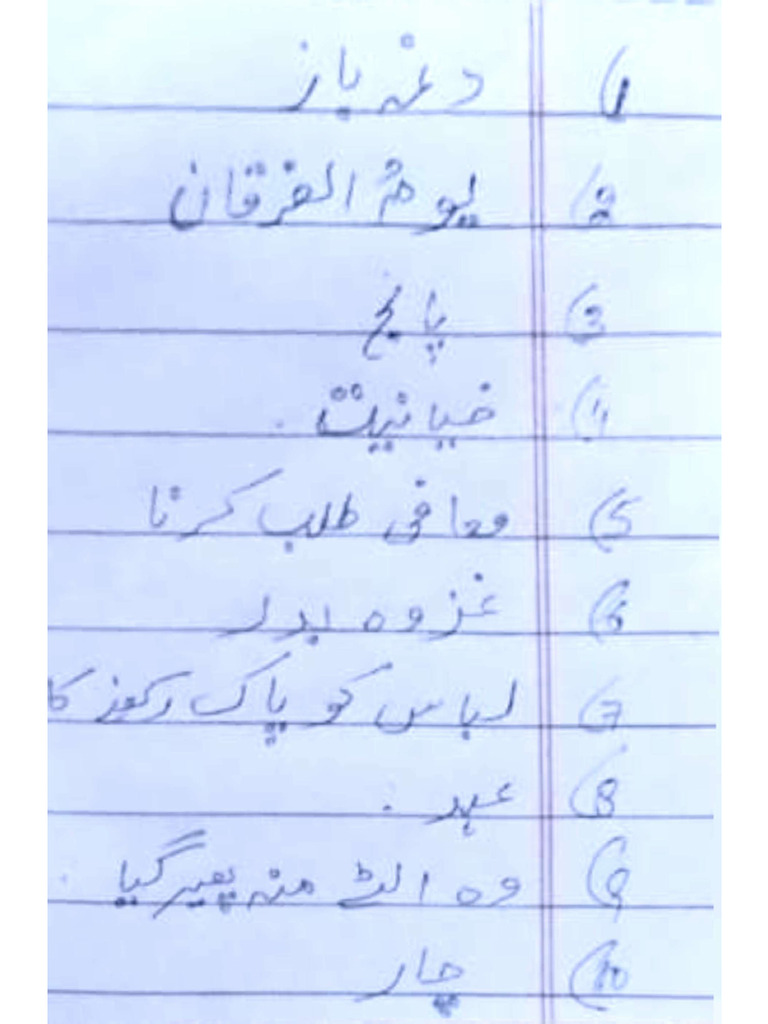 1) دغہ باز
2) یومُ الفرقان
3) پانچ
4) خیانیت .
5) معافی طلب کرنا
6) غزوہ بدر
7) لباس کو پاک رکھنے کا
8) عہد .
9) وہ الٹے منہ پھیر گیا
10) چار